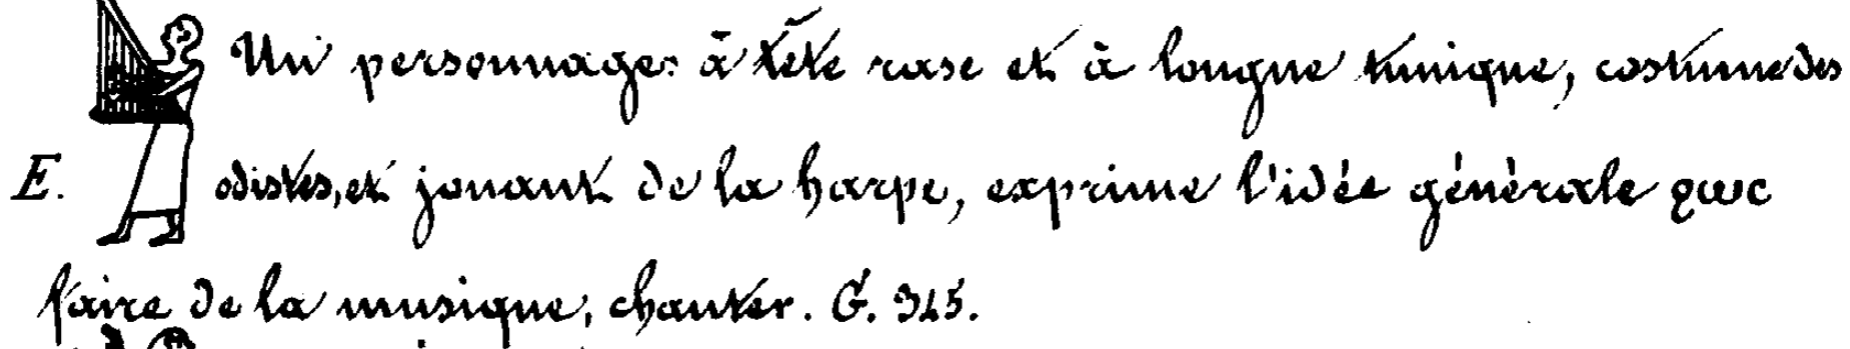 Un personnage à tête rase et à longue tunique, costume des
E. odistes, et jouant de la harpe, exprime l'idée générale ϩⲱⲥ
faire de la musique, chanter. G. 345.